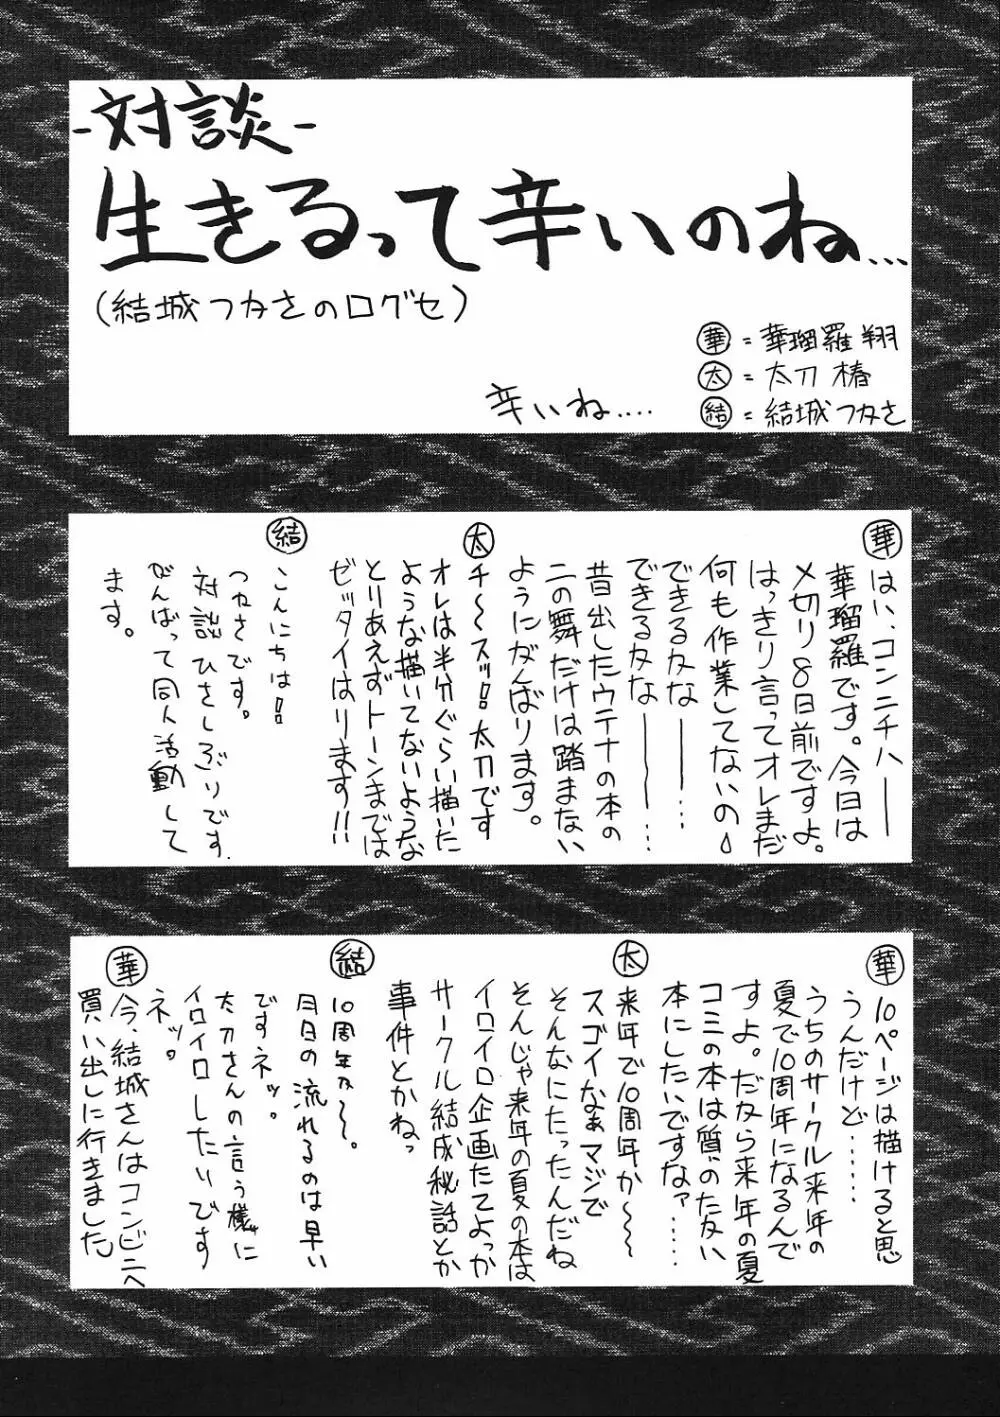 -対談-
生きるって辛いのね...
(結城つカさの口グセ)
華 = 華瑠羅翔
太 = 太刀椿
結 = 結城つカさ
辛いね....
華 はい、コンニチハ――
華瑠羅です。今日は
〆切り8日前ですよ。
はっきり言ってオレまだ
何も作業してないの
できるかな――……
できるかな――……
昔出したウテナの本の
二の舞だけは踏まない
ようにがんばります。
太 チ〜〜スッ!! 太刀です
オレは半分ぐらい描いた
ような描いてないような
とりあえずトーンまでは
ゼッタイはります!!
結 こんにちは!!
つカさです。
対談ひさしぶりです。
がんばって同人活動して
ます。
華 10ページは描けると思
うんだけど……
うちのサークル来年の
夏で10周年になるんで
すよ。だから来年の夏
コミの本は質のたかい
本にしたいですなァ……
太 来年で10周年か〜〜〜
スゴイなぁマジで
そんなにたったんだね
そんじゃ来年の夏の本は
イロイロ企画たてよっか
サークル結成秘話とか
事件とかねっ
結 10周年か〜〜。
月日の流れるのは早い
ですネッ。
太刀さんの言う様に
イロイロしたいです
ネッ。
華 今、結城さんはコンビニへ
買い出しに行きました。